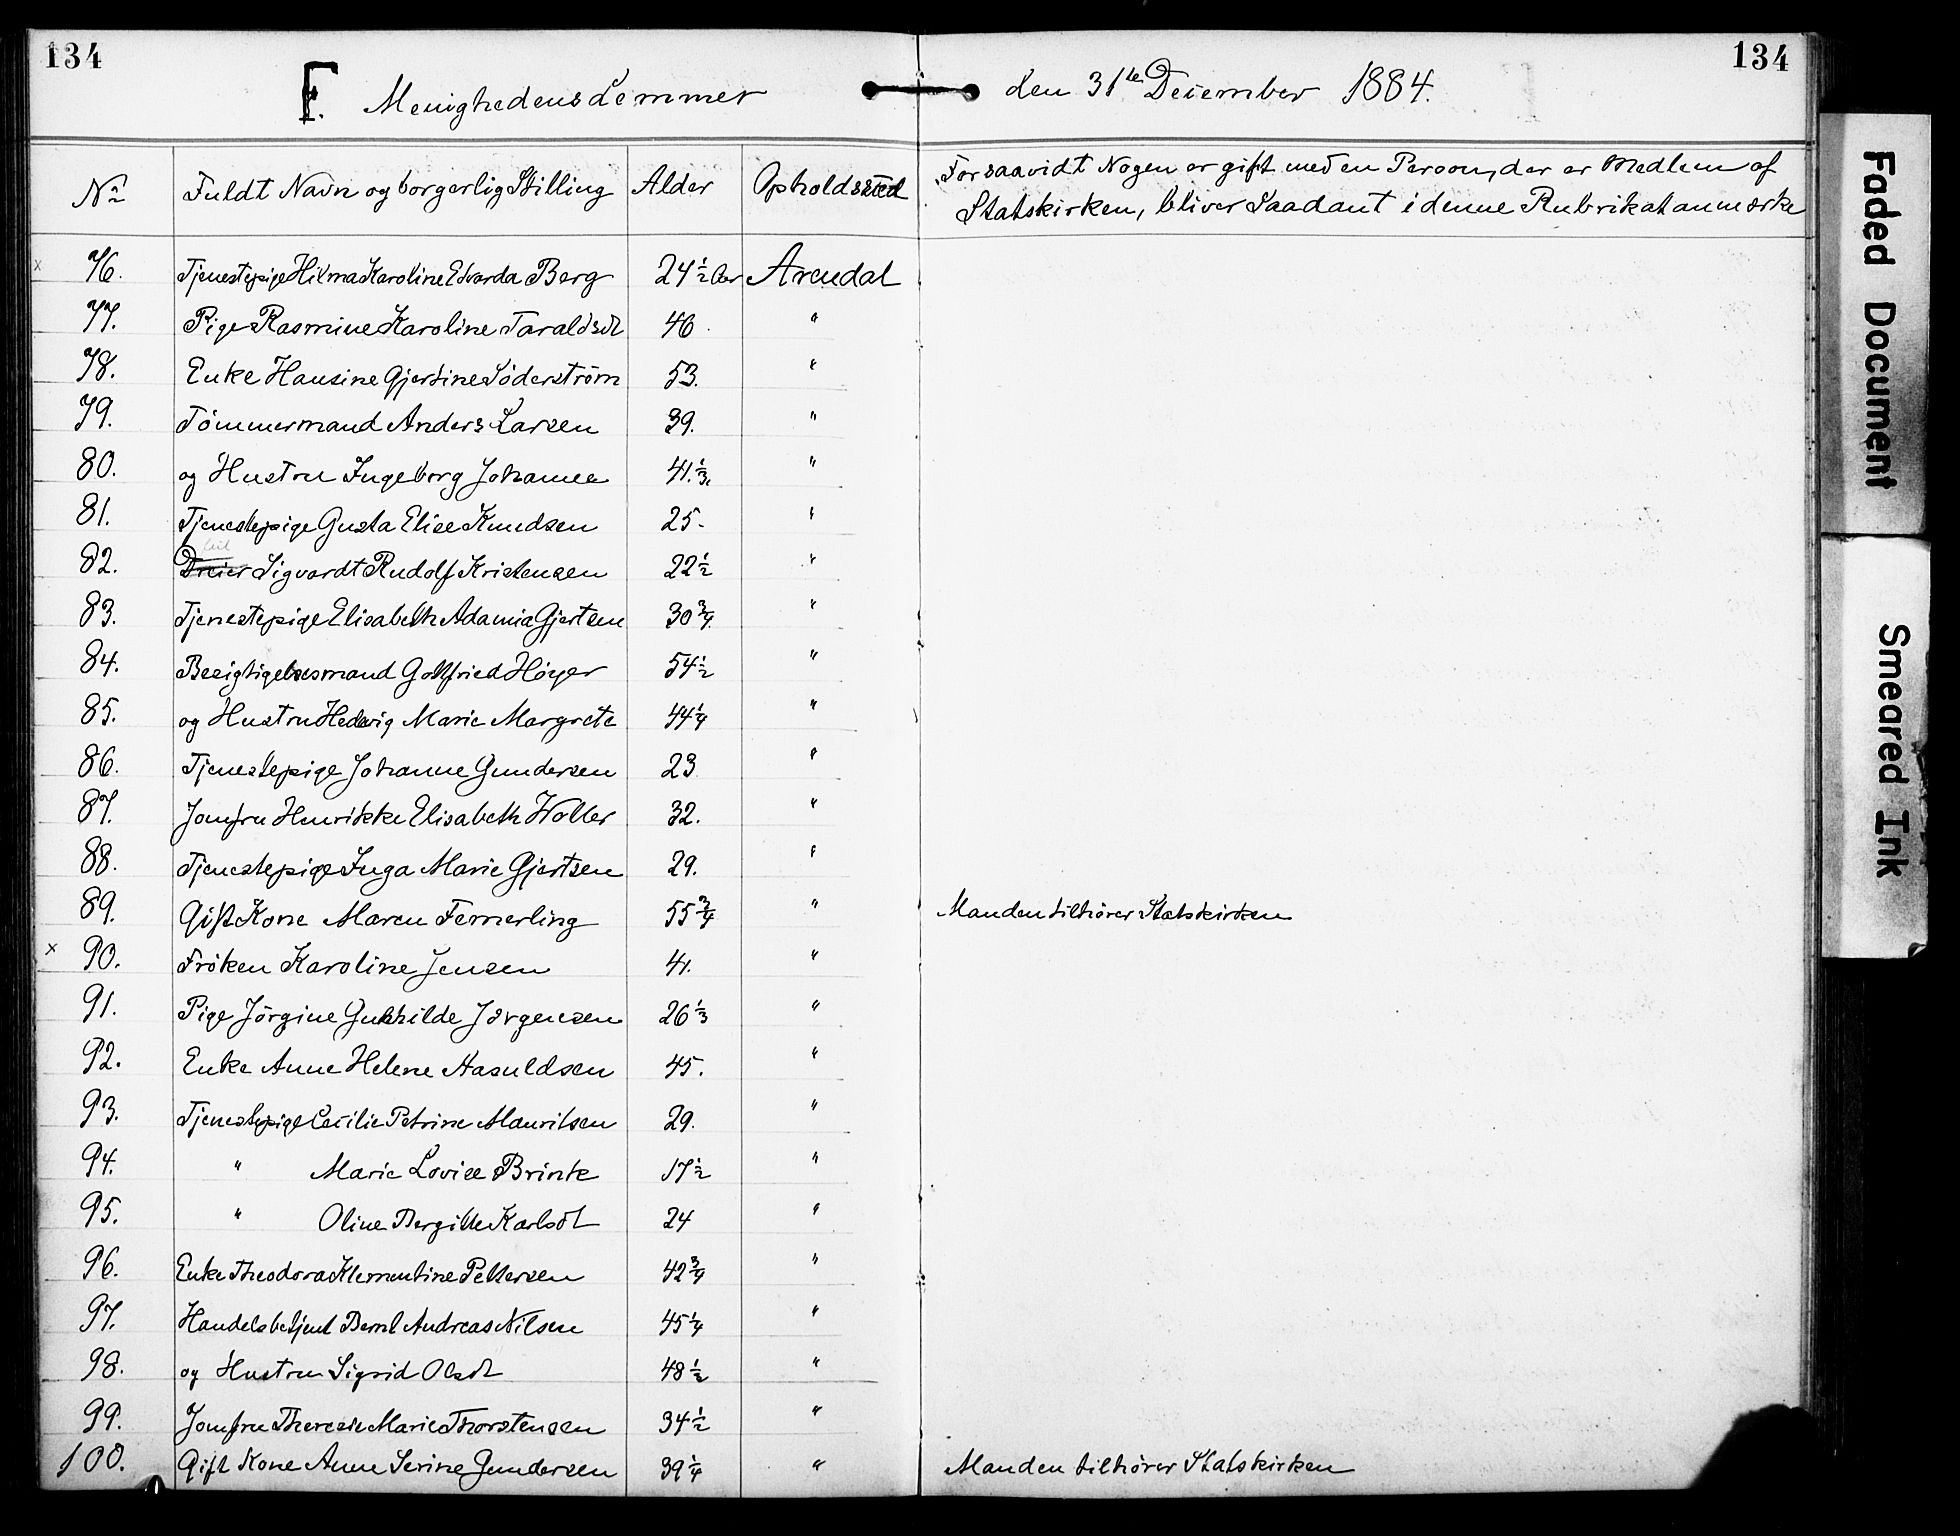 134 134
F. Menighedens Lemmer den 31te December 1884.
No Fuldt Navn og borgerlig Stilling Alder Opholdssted Forsaavidt Nogen er gift med en Person, der er Medlem af
Statskirken, bliver Saadant i denne Rubrik at anmærke
x 76. Tjenestepige Hilma Karoline Edvarda Berg 24 1/2 Aar Arendal
77. Pige Rasmine Karoline Taraldsdt 46 "
78. Enke Hansine Gjertine Söderström 53. "
79. Tömmermand Anders Larsen 39. "
80. og Hustru Ingeborg Johanne 41. 1/3. "
81. Tjenestepige Gusta Elise Knudsen 25. "
82. Dreier Sigvardt Rudolf Kristensen 22 1/2 "
83. Tjenestepige Elisabeth Adamia Gjertsen 30 3/4 "
84. Besigtigelsesmand Gottfried Höyer 54 1/2 "
85. og Hustru Hedvig Marie Margrete 44 1/4 "
86. Tjenestepige Johanne Gundersen 23 "
87. Jomfru Henrikke Elisabeth Woller 32. "
88. Tjenestepige Inga Marie Gjertsen 29. "
89. Gift Kone Maren Femerling 55 3/4 " Manden tilhörer Statskirken
x 90. Fröken Karoline Jensen 41. "
91. Pige Jörgine Gunhilde Jörgensen 26 1/3 "
92. Enke Anne Helene Aasuldsen 45. "
93. Tjenestepige Cecilie Petrine Mauritsen 29. "
94. " Marie Lovise Brink 17 1/2 "
95. " Oline Bergitte Karlsdt 24 "
96. Enke Theodora Klementine Pettersen 42 3/4 "
97. Handelsbetjent Bernt Andreas Nilsen 45 1/4 "
98. og Hustru Sigrid Olsdt 48 1/2 "
99. Jomfru Therese Marie Thorstensen 34 1/2 "
100. Gift Kone Anne Serine Gundersen 39 1/4 " Manden tilhörer Statskirken
Faded Document
Smeared Ink